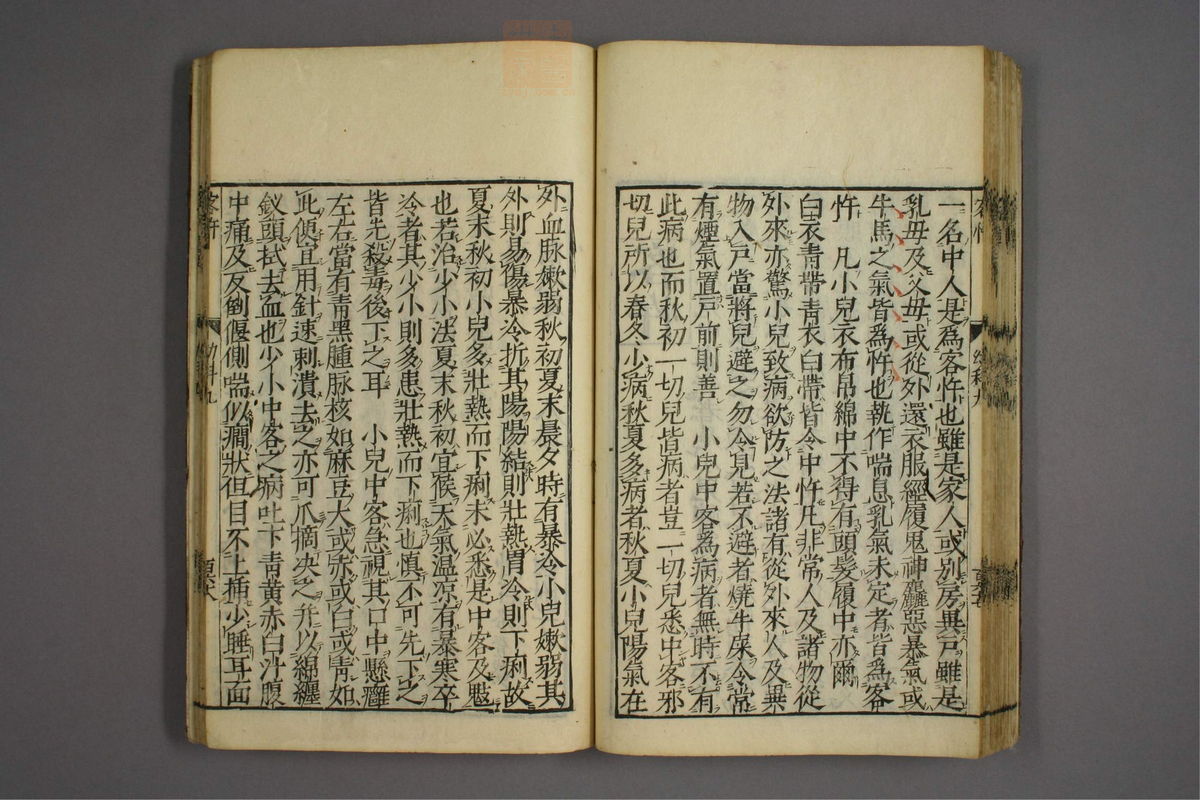 一名中人是爲客忤也雖是家人或別房異戸雖是
乳母及父母或從外還衣服經履鬼神麤惡暴氣或
牛馬之氣皆爲忤也執作喘息乳氣未定者皆爲客
忤　凡小兒衣布帛綿中不得有頭髪履中亦爾
白衣青帶青衣白帶皆令中忤凡非常人及諸物從
外來亦驚小兒致病欲防之法諸有從外來人及異
物入戸當將兒避之勿令見若不避者燒牛屎令常
有煙氣置戸前則善　小兒中客爲病者無時不有
此病也而秋初一切兒皆病者豈一切兒悉中客邪
切兒所以春冬少病秋夏多病者秋夏小兒陽氣在
外血脉嫰弱秋初夏末晨夕時有暴冷小兒嫰弱其
外則易傷暴冷折其陽陽結則壯熱胃冷則下痢故
夏末秋初小兒多壯熱而下痢末必悉是中客及魃
也若治少小法夏末秋初宜候天氣温凉有暴寒卒
冷者其少小則多患壯熱而下痢也慎不可先下之
皆先殺毒後下之耳　小兒中客急視其口中懸癰
左右當有青黑腫脉核如麻豆大或赤或白或青如
此便宜用針速刺潰去之亦可爪摘决之并以綿纏
釵頭拭去血也少小中客之病吐下青黄赤白汁腹
中痛及反倒偃側喘似癇狀但目不上插少睡耳面